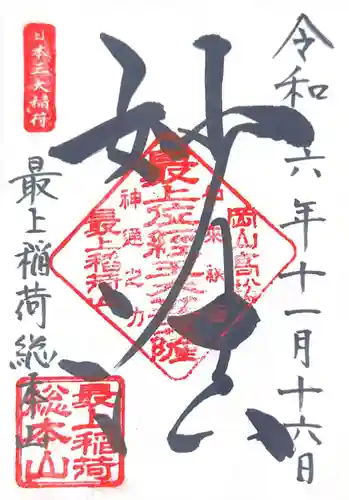 令和六年十一月十六日
妙法
日本三大稲荷
最上稲荷総本山
最上位経王大菩薩
岡山高松
最上稲荷山
神通之力
最上稲荷
総本山